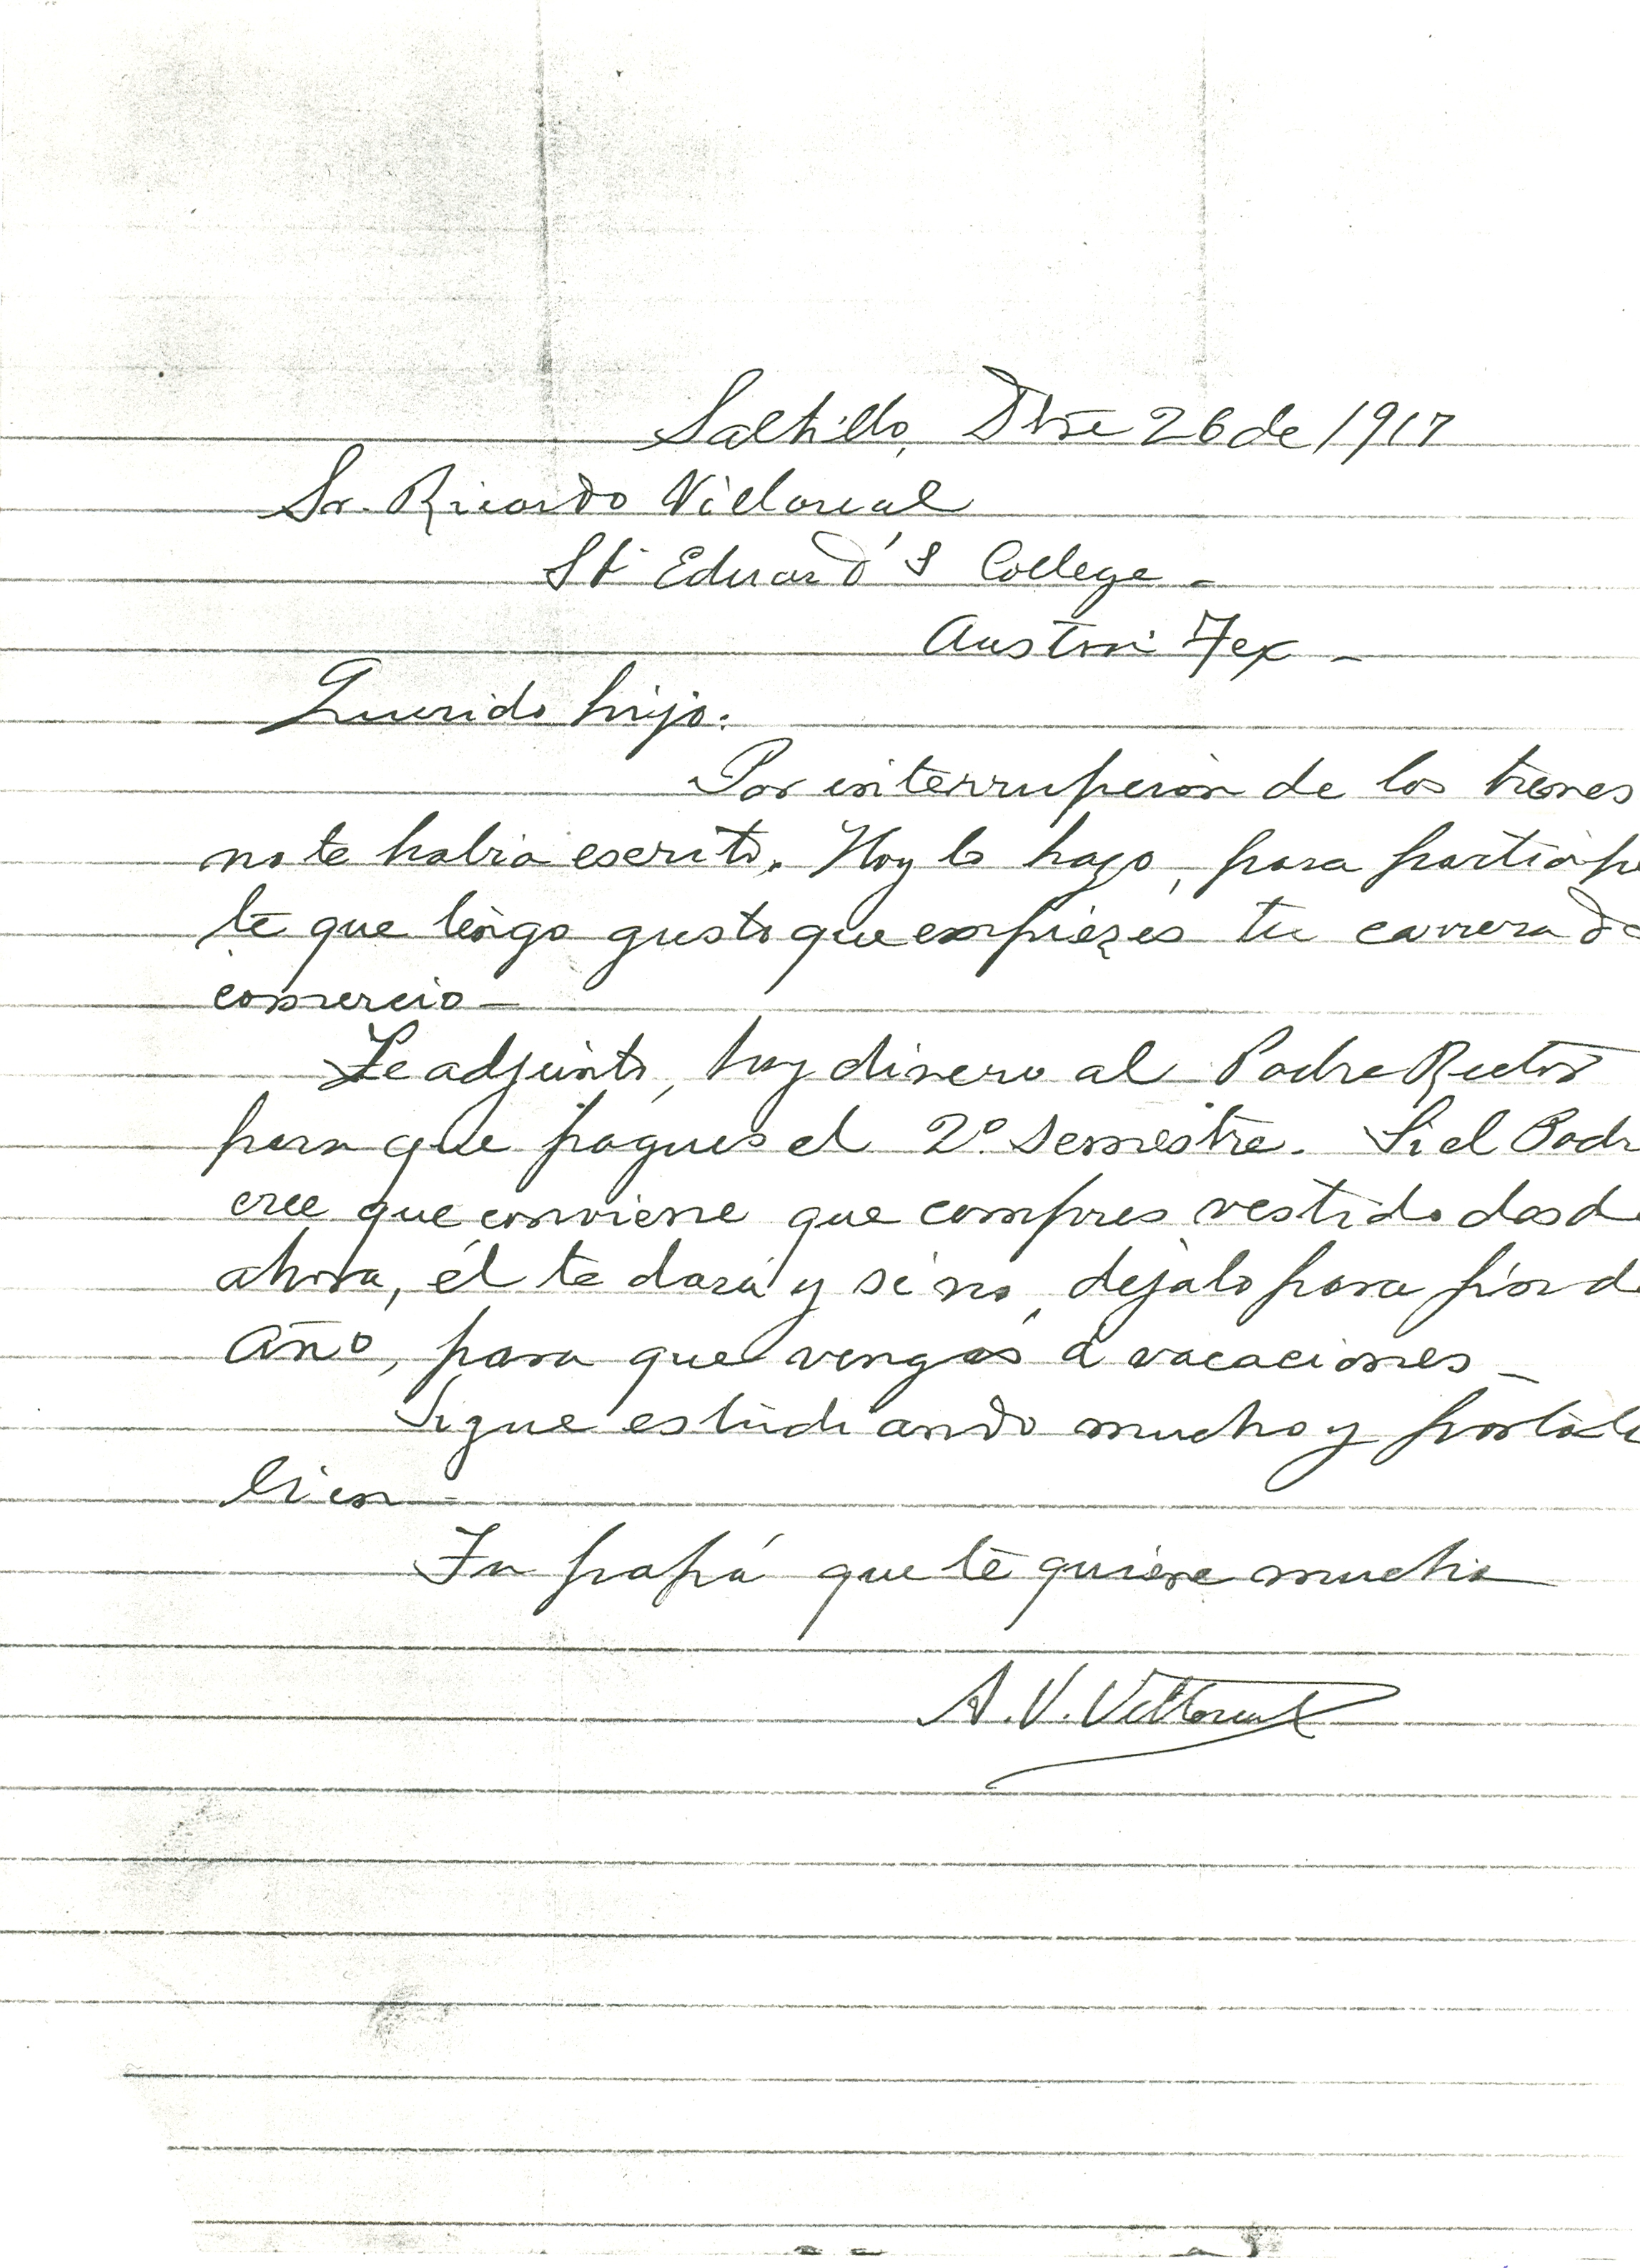 Saltillo, Dbre 26 de 1917
Sr. Ricardo Villareal
St Eduard's College -
Austin Tex -
Querido hijo:
Por interrupcion de los trenes
no te habia escrito. Hoy lo hago, para particip
te que tengo gusto que empiezes tu carrera de
comercio -
Le adjunto, hoy dinero al Padre Rector
para que pagues el 2º Semestre. Si el Padr
cree que conviene que compres vestido desde
ahora, él te dará y si no, dejalo para fin de
año, para que vengas á vacaciones -
Sigue estudiando mucho y portate
bien -
Tu papá que te quiere mucho
A. V. Villareal